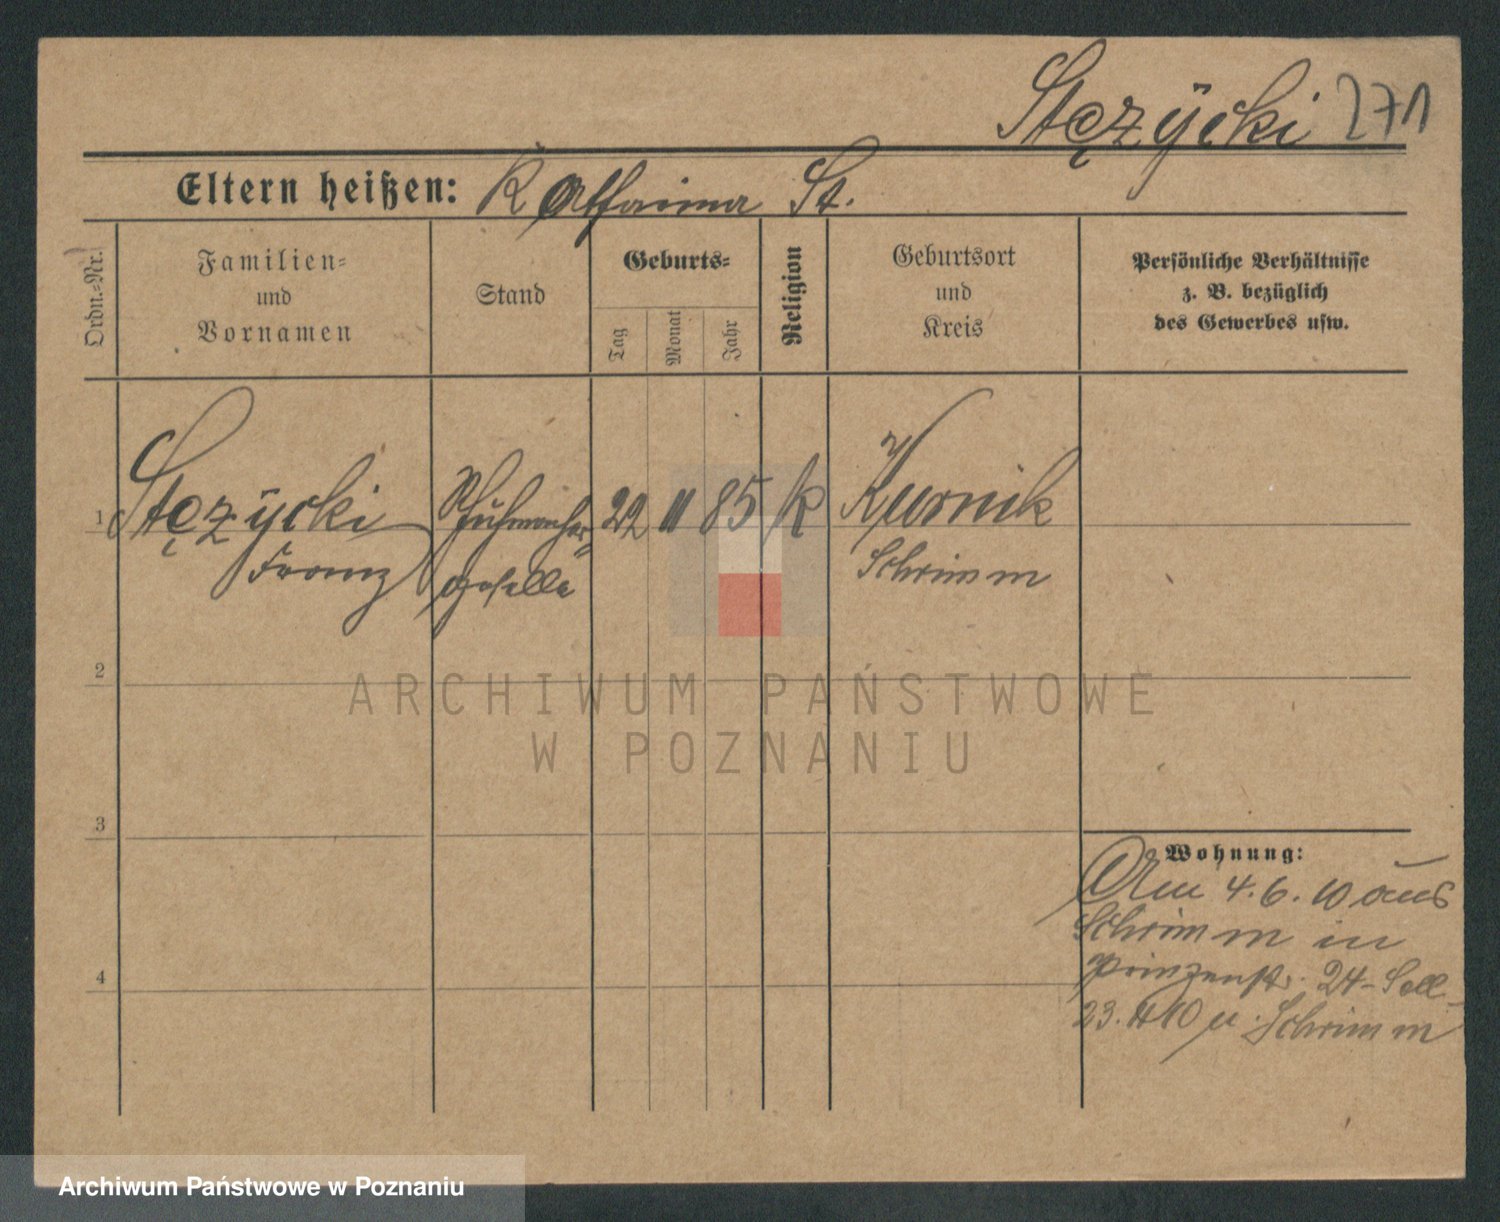 Stęzÿcki 271
Eltern heißen: Katharina St.
Ordn.-Nr.
Familien- und Vornamen
Stand
Geburts-
Tag
Monat
Jahr
Religion
Geburtsort und Kreis
Persönliche Verhältnisse
z. B. bezüglich
des Gewerbes usw.
1 Stęzÿcki Schuhmacher- 22 11 85 k Kurnik
Franz geselle Schrimm
2
ARCHIWUM PAŃSTWOWE
W POZNANIU
3
Wohnung:
Am 4.6.10 aus
Schrimm in
Prinzenstr. 24 -
23. 10 n. Schrimm
4
Archiwum Państwowe w Poznaniu